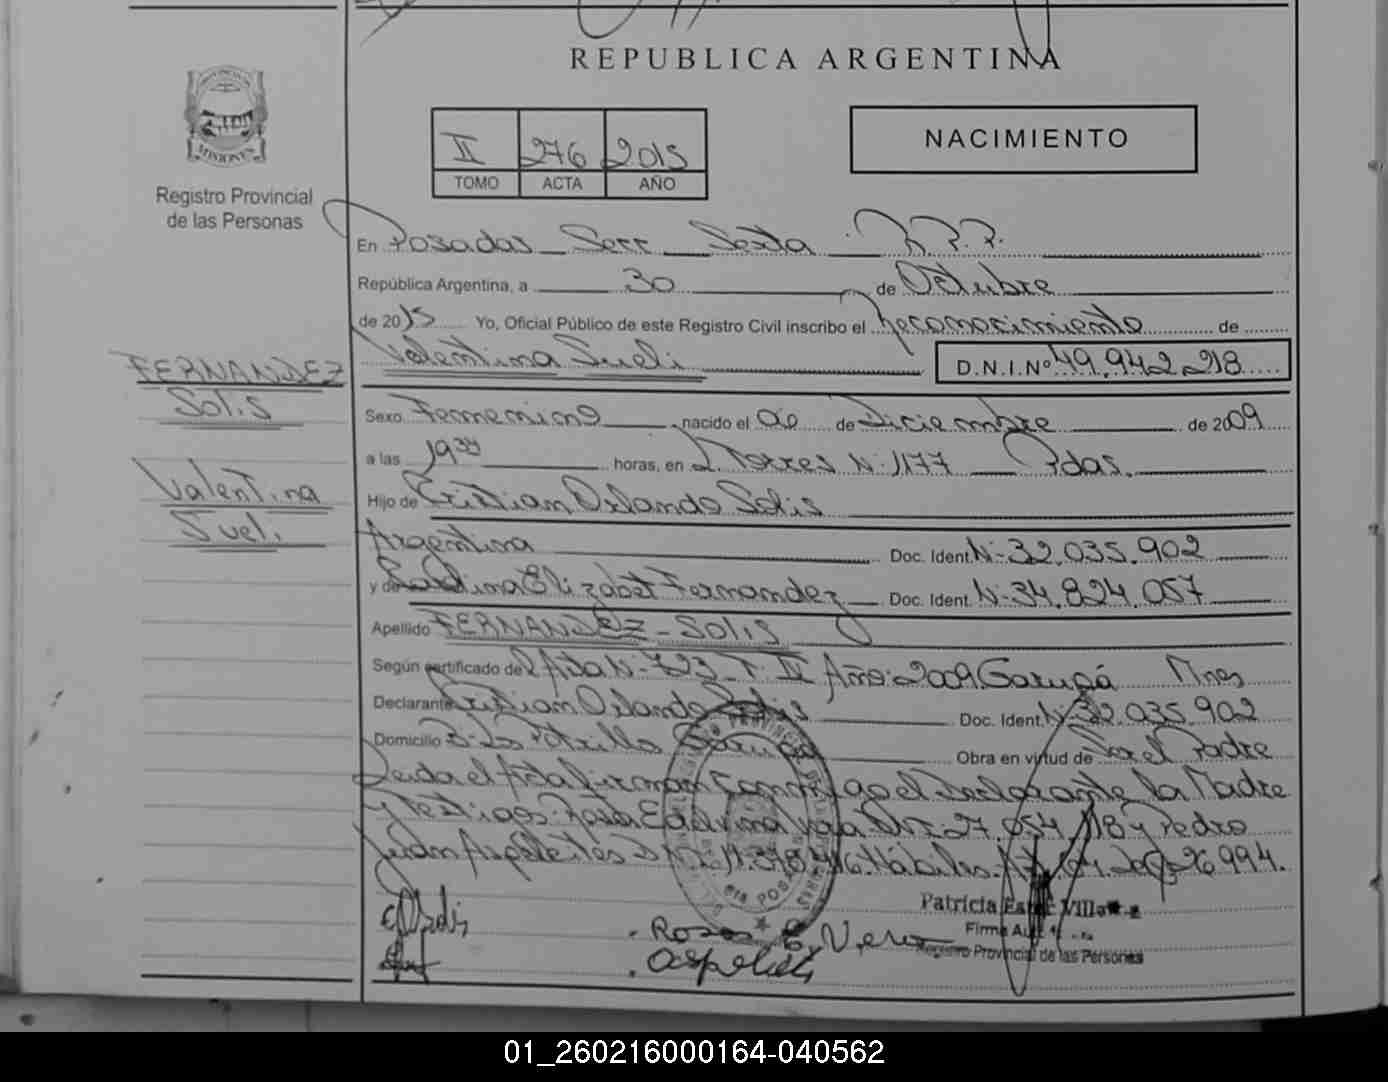 REPUBLICA ARGENTINA
PROVINCIA DE
MISIONES
Registro Provincial
de las Personas
II 276 2015
TOMO ACTA AÑO
NACIMIENTO
En Posadas Secc Sexta
República Argentina, a 30 de Octubre
de 2015 Yo, Oficial Público de este Registro Civil inscribo el reconocimiento de
Valentina Sueli D.N.I.Nº 49.942.218
FERNANDEZ
SOLIS
Valentina
Sueli
Sexo Femenino nacido el de Diciembre de 2009
a las 19 30 horas, en L. Torres Nº 1177 Pdas.
Hijo de Cristian Orlando Solis
Argentina Doc. Ident. Nº 32.035.902
y de Elizabet Fernandez Doc. Ident. Nº 34.824.057
Apellido FERNANDEZ - SOLIS
Según certificado de Acta Nº 723 T. IV Año: 2009. Garupá Mnes
Declarante Cristian Orlando Solis Doc. Ident. Nº 32.035.902
Domicilio Garupá Obra en virtud de Ser el Padre
Leida el Acta firman Conmigo el Declarante la Madre
y Testigos: Rosa DNI. 27.054. 118 y Pedro
Juan 26.994.
Rosa E. Vera
Patricia Villa
Firma
Registro Provincial de las Personas
01_260216000164-040562